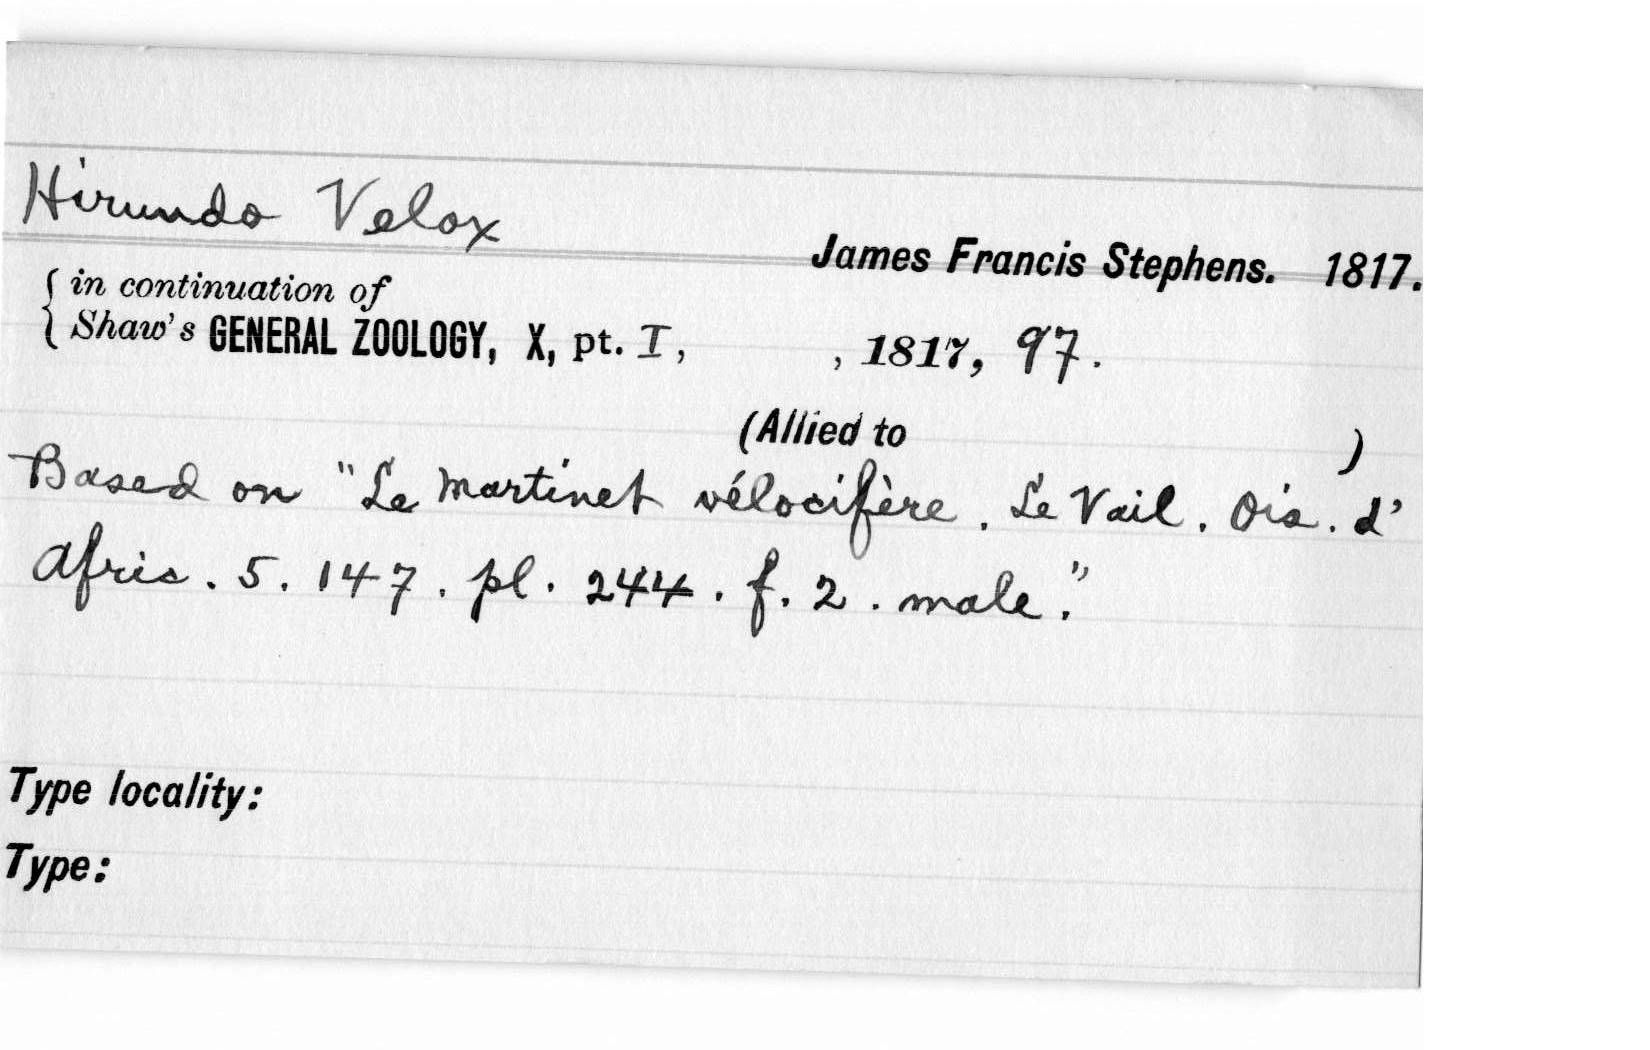 Hirundo Velox
James Francis Stephens. 1817.
in continuation of
Shaw's GENERAL ZOOLOGY, X, pt. I, , 1817, 97.
(Allied to )
Based on "Le Martinet vélocifère. Le Vail. Ois. d'
Afric. 5. 147. pl. 244. f. 2. male."
Type locality:
Type: